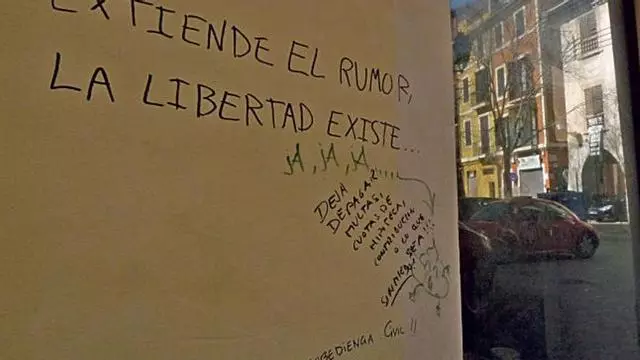 EXTIENDE EL RUMOR,
LA LIBERTAD EXISTE...
jA, jA, jA.....
DEJA
DE PAGAR
MULTAS,
CUOTAS DE
HIPOTECA,
CONTRIBUCIÓN
O LO QUE
SEA!!!
SIN MIEDO
CIVIC!!